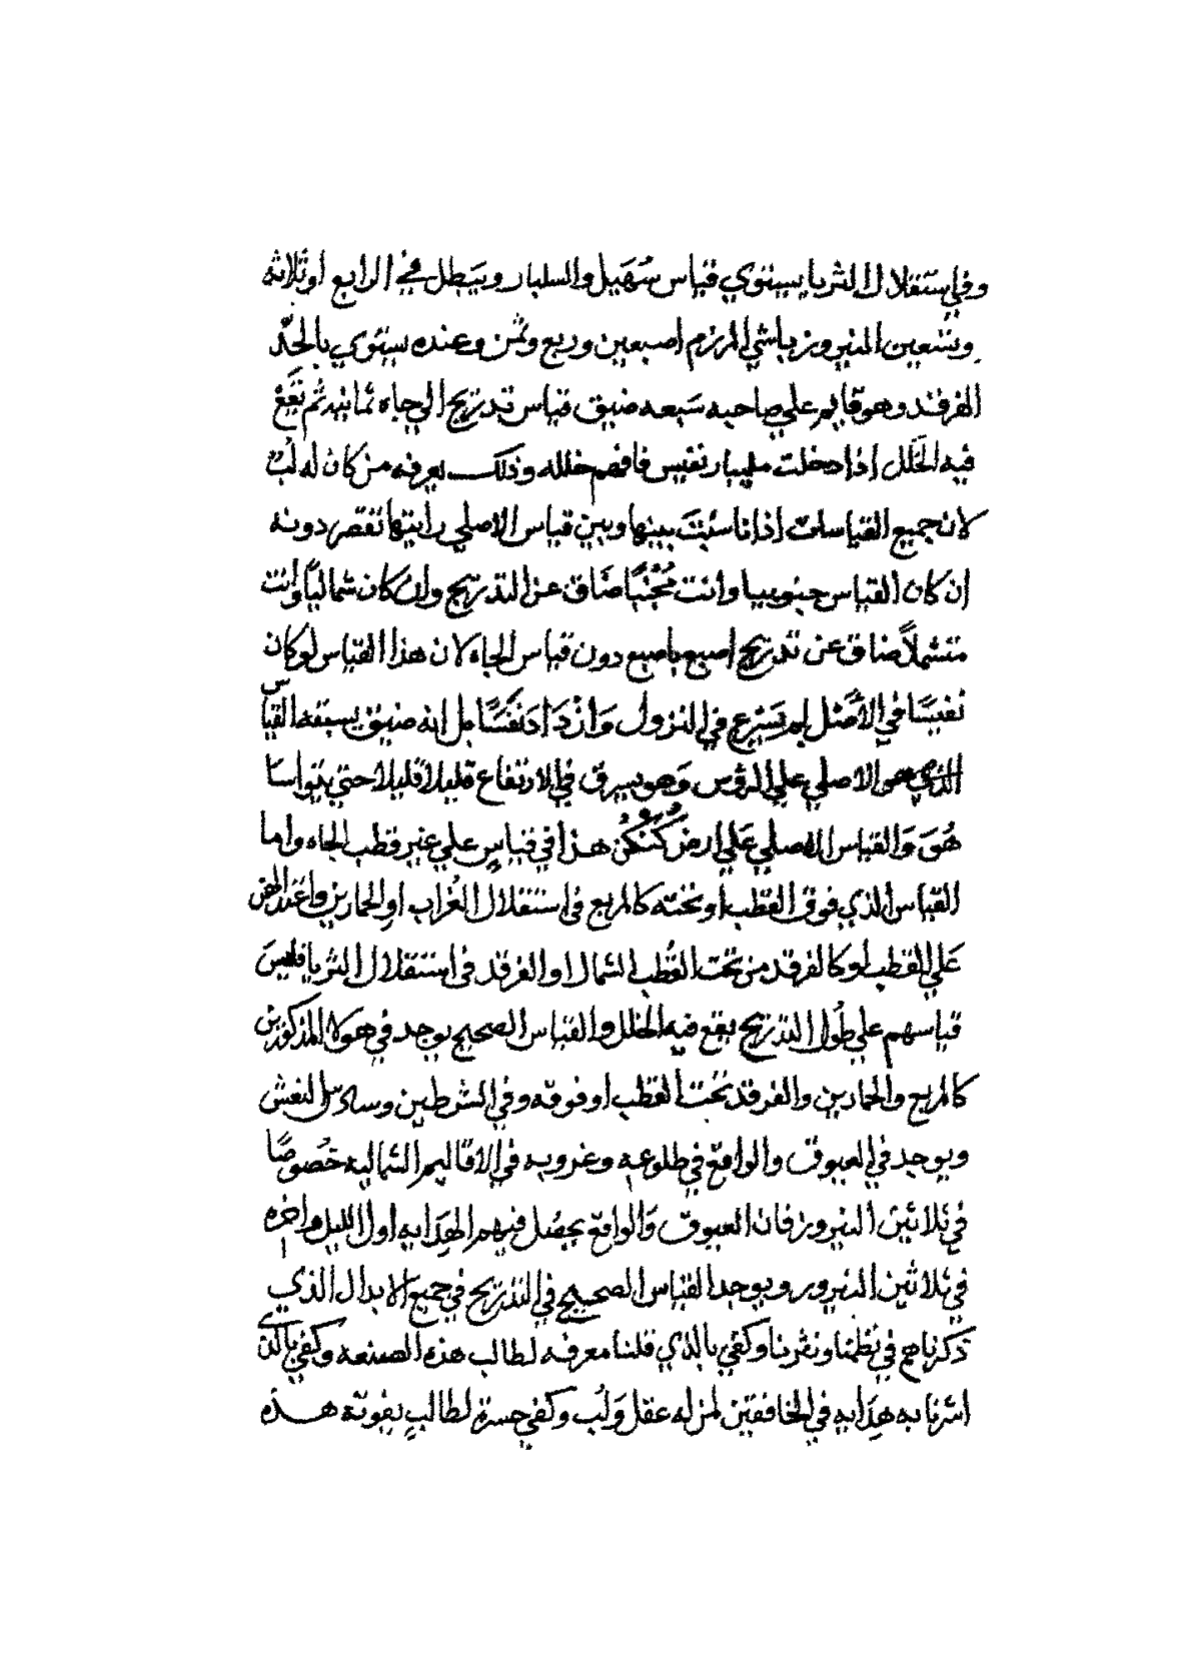 وفي استقلال الثريا يستوي قياس سُهَيل والسلبار ويَبطل في الرابع او ثلاثه
وتسعين النيروز باشي المرزم اصبعين وربع وثمن وعنده يستوي بالجَدّ
الفرقد وهو قايم علي صاحبه سَبعه ضيق قياس تدريج الي جاه ثمانيه ثم يَقَعْ
فيه الخَلَل اذا دخلت مليبار نفيس فافهم خلله وذلك يعرفه من كان له لُبّ
لان جميع القياسات اذا ناسَبْتَ بينها وبين قياس الاصلي رايتها تقصر دونه
ان كان القياس جنوبيا وانت مُجْنِبًا ضَاق عن التدريج وان كان شماليًا وانت
متشملاً ضاق عن تدريج اصبع باصبع دون قياس الجاه لان هذا القياس لو كان
نفيسًا في الأَصْل لم يَسْرع في النزول وَازْدَادَ نَفَسًا بل انه ضيق يسبقه القياس
الذي هو الاصلي علي الروس وَهو يسرق في الارتفاع قليلا قليلا حتي يتواسا
هُوَ وَالقياس الاصلي عَلي ارض كُنْكُنْ هذا في قياسٍ علي غير قطب الجاه واما
القياس الذي فوق القطب او تحته كالمربع في استقلال الغُراب او الحمارين واعتد الهن
عَلي القطب او كالفرقد من تحت القُطب الشمال او الفرقد في استقلال الثريا فليسَ
قياسهم علي طُول التدريج يقع فيه الخلل والقياس الصحيح يوجد في هولا المذكورين
كالمربع والحمارين والفرقد تَحْت القطب او فوقه وفي الشرطين وسادس النعش
ويوجد في العيوق والواقع في طلوعه وغروبه في الاقاليم الشماليه خصُوصًا
في ثلاثين النيروز فان العيوق وَالواقع يحصُل فيهم الهِدَايه اول الليل واخره
في ثلاثين النيروز ويوجد القياس الصحيح في التدريج في جميع الابدال الذي
ذكرناهم في نظمنا ونثرنا وكفي بالذي قلنا معرفه لطالب هذه الصنعه وكفي بالذي
اشرنا به هِدَايه في الخافقين لمن له عقل وَلُب وكفي حسرة لطالبٍ يفوته هذه